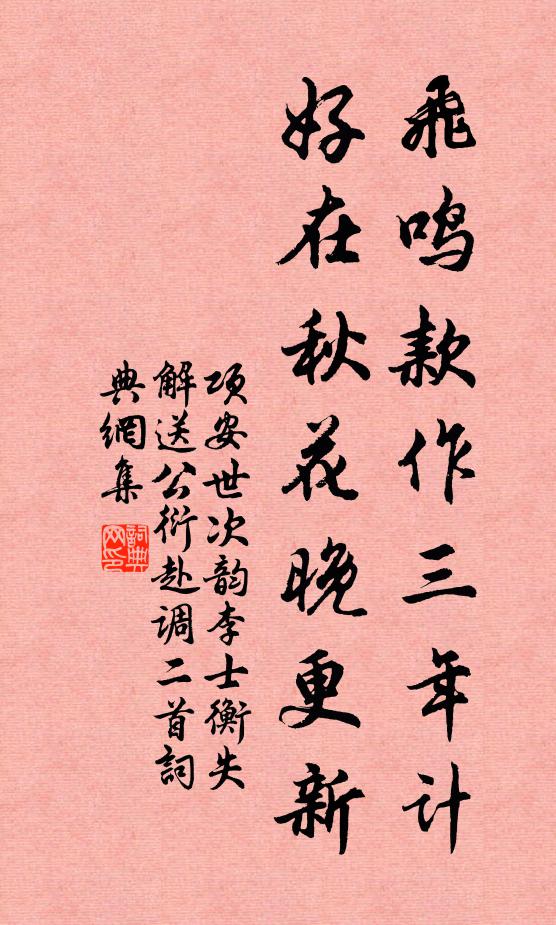 飛鸣款作三年计
好在秋花晚更新
项安世次韵李士衡失
解送公衍赴调二首詞
典網集
詞典网印